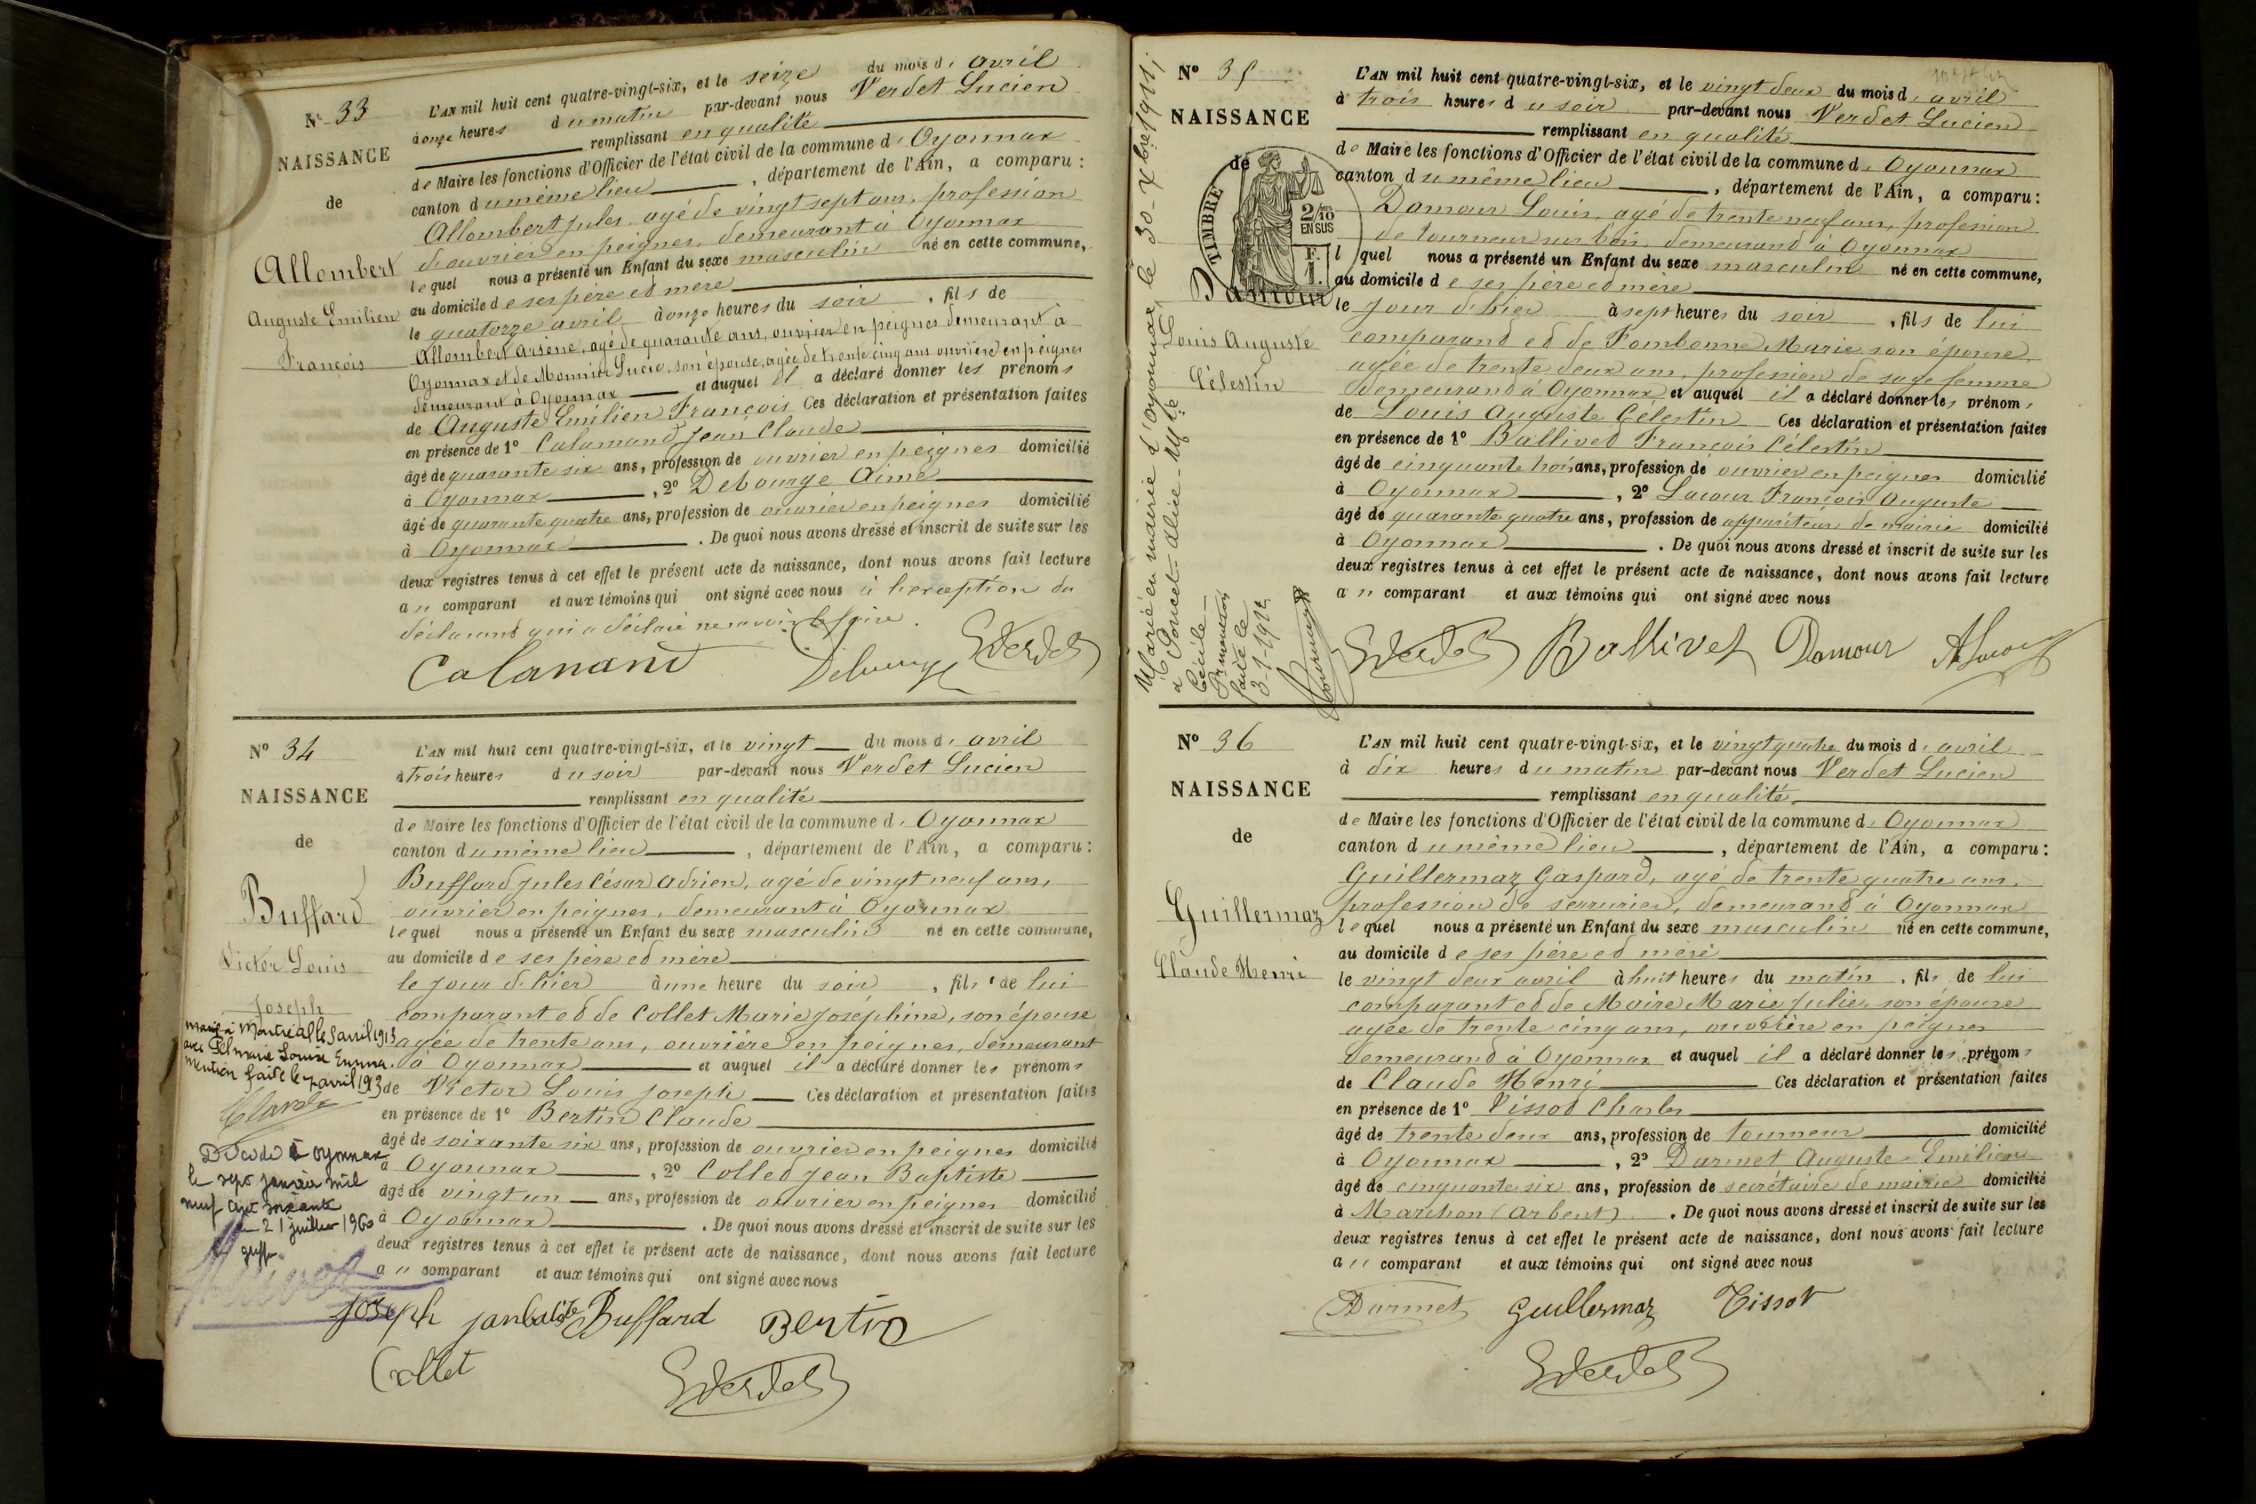 Nº 33
NAISSANCE
de
Allombert
Auguste Emilien
François
L'AN mil huit cent quatre-vingt-six, et le seize du mois d'avril
à onze heures du matin par-devant nous Verdet Lucien
remplissant en qualité
de Maire les fonctions d'Officier de l'état civil de la commune d'Oyonnax
canton du même lieu, département de l'Ain, a comparu :
Allombert Jules, agé de vingt sept ans, profession
d'ouvrier en peignes, demeurant à Oyonnax
lequel nous a présenté un Enfant du sexe masculin né en cette commune,
au domicile de ses père et mère
le quatorze avril à onze heures du soir, fils de
Allombert Arsène, agé de quarante ans, ouvrier en peignes demeurant à
Oyonnax et de Monnier Lucie, son épouse, agée de trente cinq ans ouvrière en peignes
demeurant à Oyonnax et auquel il a déclaré donner les prénoms
de Auguste Emilien François Ces déclaration et présentation faites
en présence de 1º Calamand Jean Claude
âgé de quarante six ans, profession de ouvrier en peignes domicilié
à Oyonnax, 2º Debourge Aimé
âgé de quarante quatre ans, profession de ouvrier en peignes domicilié
à Oyonnax. De quoi nous avons dressé et inscrit de suite sur les
deux registres tenus à cet effet le présent acte de naissance, dont nous avons fait lecture
au comparant et aux témoins qui ont signé avec nous à l'exception du
déclarant qui a déclaré ne savoir le faire.
Calanand Debourge Verdet
Nº 34
NAISSANCE
de
Buffard
Victor Louis
Joseph
marié à Montréal le 5 avril 1913
avec Marie Louise Emma
mention faite le 7 avril 1913
Décédé à Oyonnax
le sept janvier mil
neuf cent soixante
21 juillet 1960
L'AN mil huit cent quatre-vingt-six, et le vingt du mois d'avril
à trois heures du soir par-devant nous Verdet Lucien
remplissant en qualité
de Maire les fonctions d'Officier de l'état civil de la commune d'Oyonnax
canton du même lieu, département de l'Ain, a comparu :
Buffard Jules César Adrien, agé de vingt neuf ans,
ouvrier en peignes, demeurant à Oyonnax
lequel nous a présenté un Enfant du sexe masculin né en cette commune,
au domicile de ses père et mère
le jour d'hier à une heure du soir, fils de lui
comparant et de Collet Marie Joséphine, son épouse
agée de trente ans, ouvrière en peignes, demeurant
à Oyonnax et auquel il a déclaré donner les prénoms
de Victor Louis Joseph Ces déclaration et présentation faites
en présence de 1º Bertin Claude
âgé de soixante six ans, profession de ouvrier en peignes domicilié
à Oyonnax, 2º Collet Jean Baptiste
âgé de vingt un ans, profession de ouvrier en peignes domicilié
à Oyonnax. De quoi nous avons dressé et inscrit de suite sur les
deux registres tenus à cet effet le présent acte de naissance, dont nous avons fait lecture
au comparant et aux témoins qui ont signé avec nous
Joseph Buffard Bertin
Collet Verdet
Nº 35
NAISSANCE
de
TIMBRE
2/10
EN SUS
F.
1.
Damour
Louis Auguste
Célestin
Marié en mairie d'Oyonnax, le 30 Xbre 1911,
à Poncet Alice
Cécile
faite le
3-1-1912
L'AN mil huit cent quatre-vingt-six, et le vingt deux du mois d'avril
à trois heures du soir par-devant nous Verdet Lucien
remplissant en qualité
de Maire les fonctions d'Officier de l'état civil de la commune d'Oyonnax
canton du même lieu, département de l'Ain, a comparu :
Damour Louis, agé de trente neuf ans, profession
de tourneur sur bois, demeurant à Oyonnax
lquel nous a présenté un Enfant du sexe masculin né en cette commune,
au domicile de ses père et mère
le jour d'hier à sept heures du soir, fils de lui
comparant et de Pombonne Marie son épouse
agée de trente deux ans, profession de sage femme
demeurant à Oyonnax et auquel il a déclaré donner les prénoms
de Louis Auguste Célestin Ces déclaration et présentation faites
en présence de 1º Ballivet François Célestin
âgé de cinquante trois ans, profession de ouvrier en peignes domicilié
à Oyonnax, 2º Lacour François Auguste
âgé de quarante quatre ans, profession de appariteur de mairie domicilié
à Oyonnax. De quoi nous avons dressé et inscrit de suite sur les
deux registres tenus à cet effet le présent acte de naissance, dont nous avons fait lecture
au comparant et aux témoins qui ont signé avec nous
Verdet Ballivet Damour
Nº 36
NAISSANCE
de
Guillermaz
Claude Henri
L'AN mil huit cent quatre-vingt-six, et le vingt quatre du mois d'avril
à dix heures du matin par-devant nous Verdet Lucien
remplissant en qualité
de Maire les fonctions d'Officier de l'état civil de la commune d'Oyonnax
canton du même lieu, département de l'Ain, a comparu :
Guillermaz Gaspard, agé de trente quatre ans,
profession de serrurier, demeurant à Oyonnax
lequel nous a présenté un Enfant du sexe masculin né en cette commune,
au domicile de ses père et mère
le vingt deux avril à huit heures du matin, fils de lui
comparant et de Maire Marie Julie, son épouse
agée de trente cinq ans, ouvrière en peignes
demeurant à Oyonnax et auquel il a déclaré donner les prénoms
de Claude Henri Ces déclaration et présentation faites
en présence de 1º Tissot Charles
âgé de trente deux ans, profession de tourneur domicilié
à Oyonnax, 2º Darmet Auguste Emilien
âgé de cinquante six ans, profession de secrétaire de mairie domicilié
à Marchon (Arbent). De quoi nous avons dressé et inscrit de suite sur les
deux registres tenus à cet effet le présent acte de naissance, dont nous avons fait lecture
au comparant et aux témoins qui ont signé avec nous
Darmet Guillermaz Tissot
Verdet